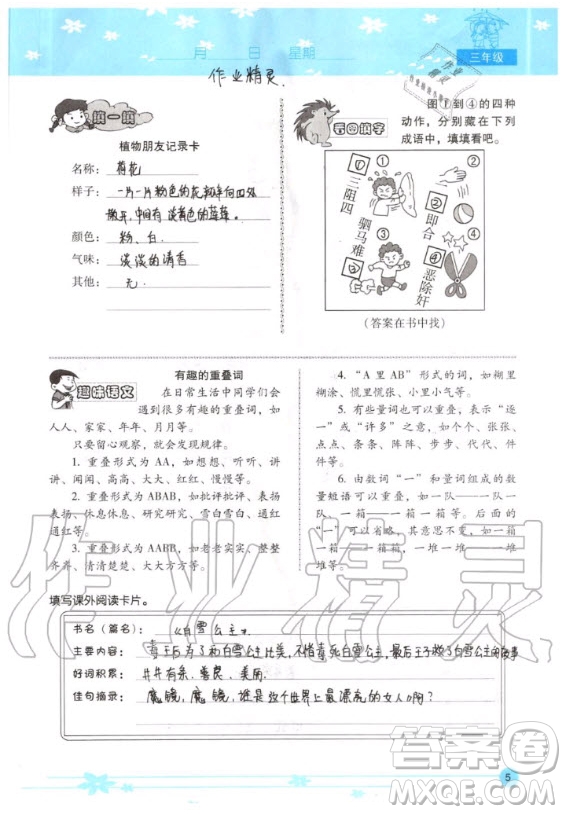 月 日 星期
三年级
作业精灵
填一填
植物朋友记录卡
名称：荷花
样子：一片一片粉色的花瓣向四处
散开，中间有淡黄色的莲蓬。
颜色：粉、白
气味：淡淡的清香
其他：无
看图填字
图①到④的四种
动作，分别藏在下列
成语中，填填看吧。
① 三阻四
② 即合
驷马难 ③
④ 恶除奸
①
②
③
④
（答案在书中找）
趣味语文
有趣的重叠词
在日常生活中同学们会
遇到很多有趣的重叠词，如
人人、家家、年年、月月等。
只要留心观察，就会发现规律。
1. 重叠形式为 AA，如想想、听听、讲
讲、闻闻、高高、大大、红红、慢慢等。
2. 重叠形式为 ABAB，如批评批评、表
扬表扬、休息休息、研究研究、雪白雪白、通
红通红等。
3. 重叠形式为 AABB，如老老实实、整整
齐齐、清清楚楚、大大方方等。
4. “A 里 AB”形式的词，如糊里
糊涂、慌里慌张、小里小气等。
5. 有些量词也可以重叠，表示“逐
一”或“许多”之意，如个个、张张、
点点、条条、阵阵、步步、代代、件件
等。
6. 由数词“一”和量词组成的数
量短语可以重叠，如一队——一队一
队、一箱——一箱一箱等。有些第二个
“一”可以省略，其意思不变，如一箱
一箱——一箱箱、一堆一堆——一堆
堆等。
填写课外阅读卡片。
书名（篇名）：《白雪公主》
主要内容：毒王后为了和白雪公主比美，不惜毒死白雪公主，最后王子救了白雪公主的故事
好词积累：井井有条、善良、美丽
佳句摘录：魔镜，魔镜，谁是这个世界上最漂亮的女人啊？
作业精灵
答案圈
MXQE.COM
5